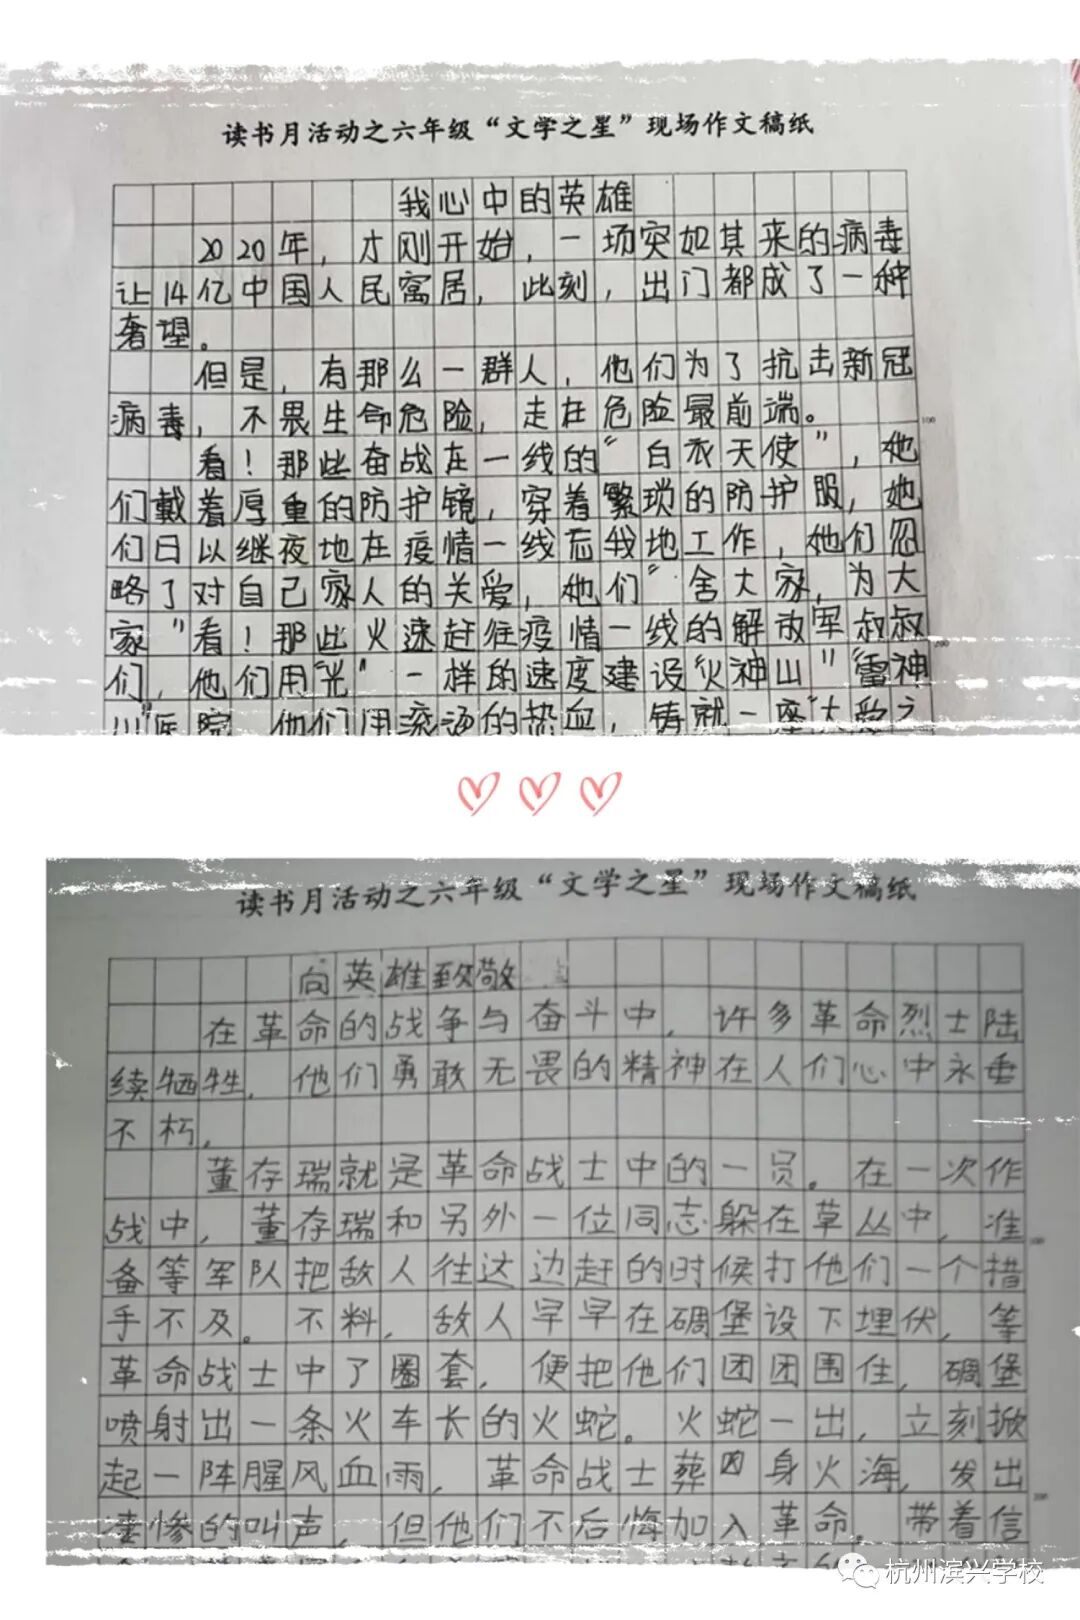 读书月活动之六年级“文学之星”现场作文稿纸
我心中的英雄
2020年，才刚开始，一场突如其来的病毒
让14亿中国人民寓居，此刻，出门都成了一种
奢望。
但是，有那么一群人，他们为了抗击新冠
病毒，不畏生命危险，走在危险最前端。
100
看！那些奋战在一线的“白衣天使”，她
们戴着厚重的防护镜，穿着繁琐的防护服，她
们日以继夜地在疫情一线忘我地工作，她们忽
略了对自己家人的关爱，她们“舍大家，为大
家”看！那些火速赶往疫情一线的解放军叔叔
200
们，他们用“光”一样的速度建设“火神山”“雷神
山”医院，他们用滚汤的热血，铸就一座“大爱之
读书月活动之六年级“文学之星”现场作文稿纸
向英雄致敬
在革命的战争与奋斗中，许多革命烈士陆
续牺牲，他们勇敢无畏的精神在人们心中永垂
不朽，
董存瑞就是革命战士中的一员。在一次作
战中，董存瑞和另外一位同志躲在草丛中，准
100
备等军队把敌人往这边赶的时候打他们一个措
手不及。不料，敌人早早在碉堡设下埋伏，等
革命战士中了圈套，便把他们团团围住，碉堡
喷射出一条火车长的火蛇。火蛇一出，立刻掀
起一阵腥风血雨，革命战士葬因身火海，发出
200
凄惨的叫声，但他们不后悔加入革命。带着信
杭州滨兴学校